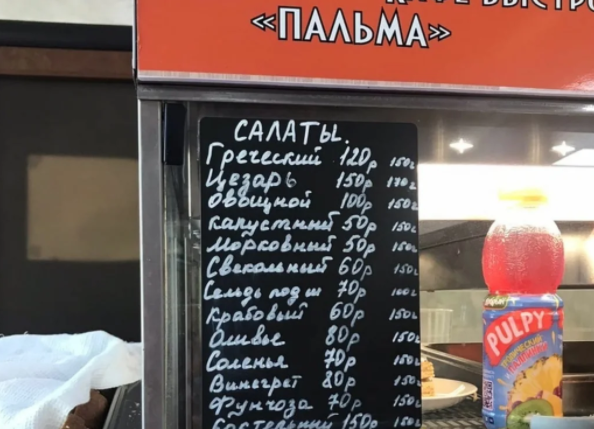 БЫСТРО
«ПАЛЬМА»
САЛАТЫ.
Греческий 120р 150г
Цезарь 150р 170г
овощной 100р 150г
капустный 50р 150г
морковный 50р 150г
Свекольный 60р 150г
Сельдь под ш 70р 100г
Крабовый 60р 150г
Оливье 80р 150г
Соленья 70р 150г
Винегрет 80р 150г
Фунчоза 70р 150г
150р 150г
PULPY